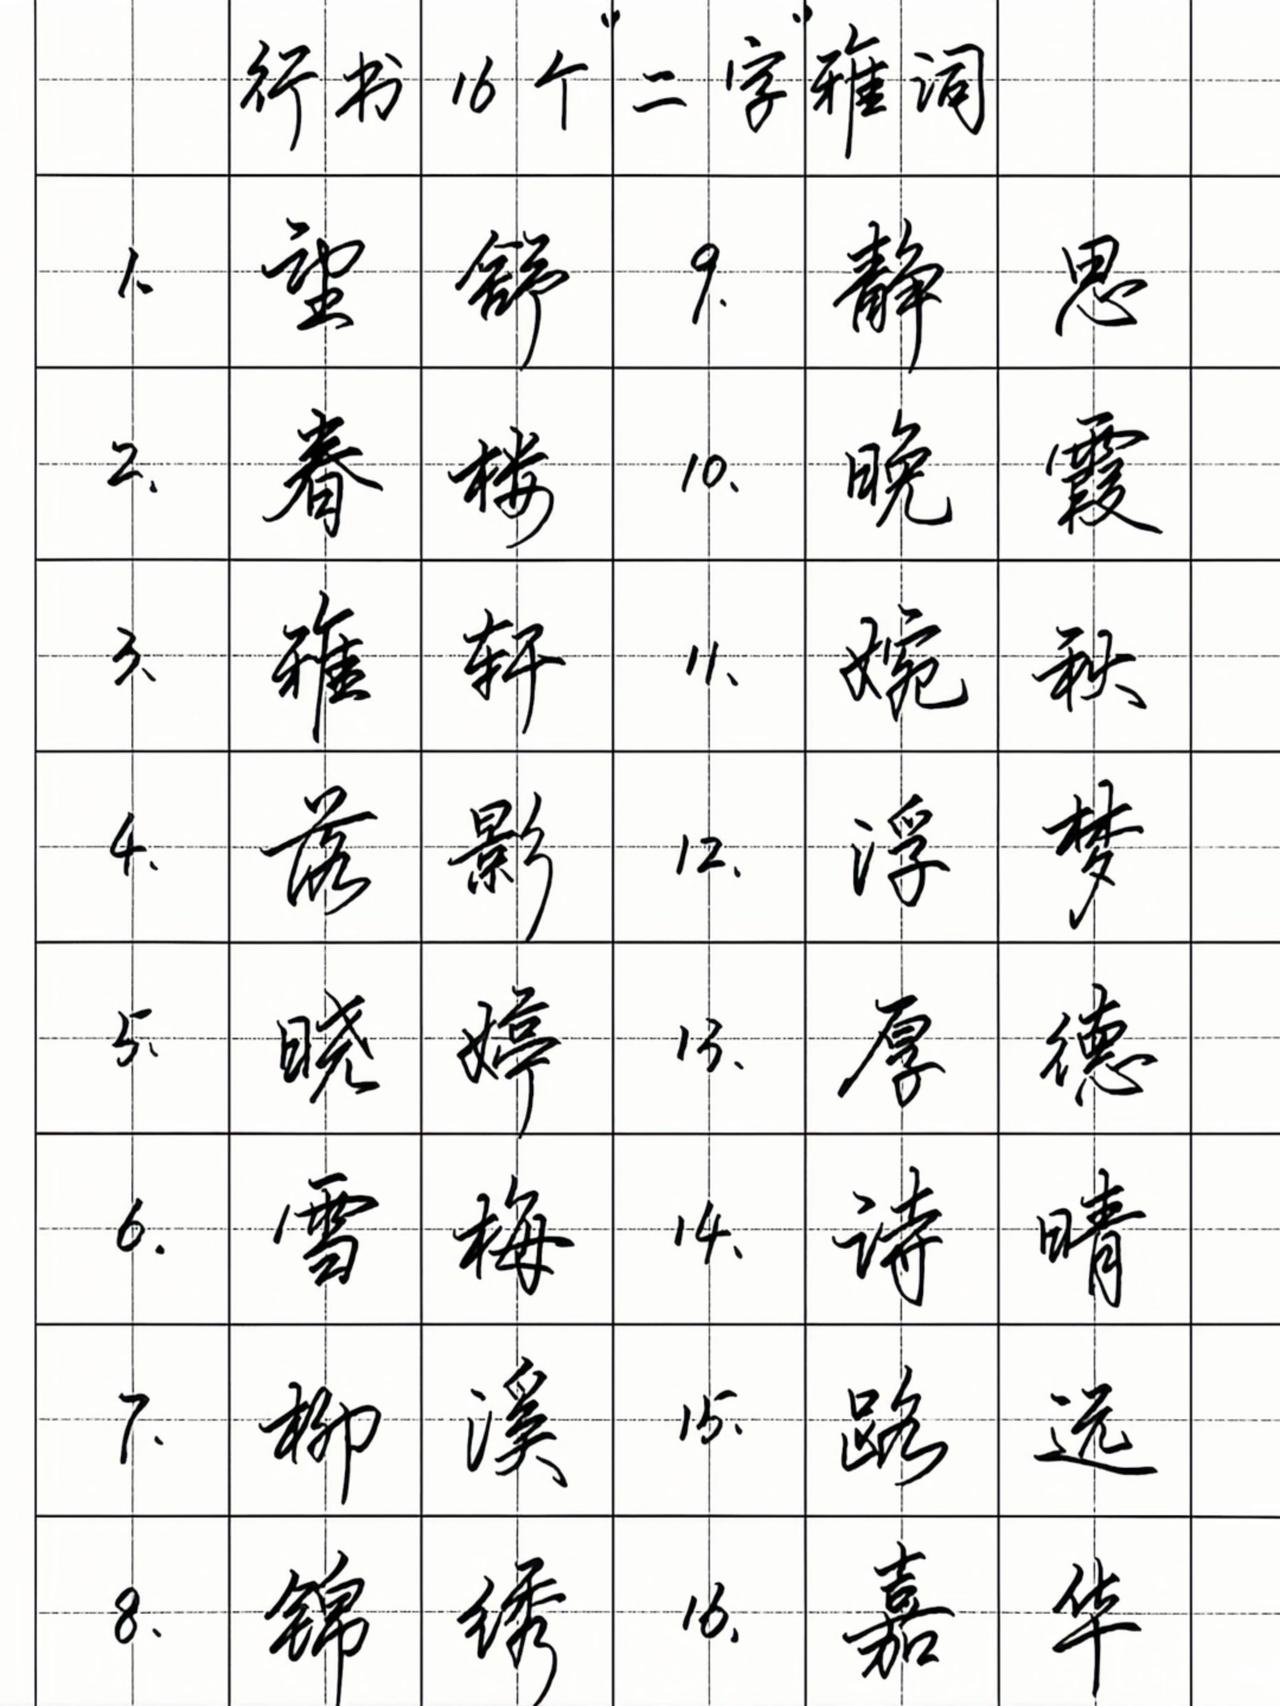 行书16个“二字”雅词
1、望舒 9、静思
2、眷楼 10、晚霞
3、雅轩 11、婉秋
4、落影 12、浮梦
5、晓婷 13、厚德
6、雪梅 14、诗晴
7、柳溪 15、路远
8、锦绣 16、嘉华